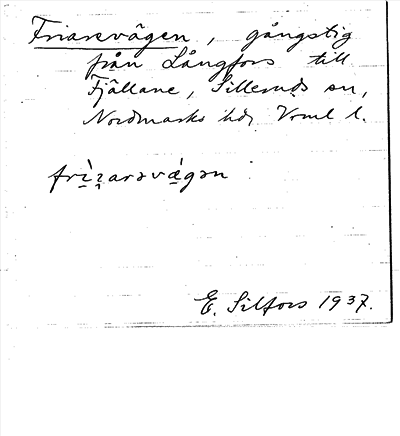 Friarevägen, gångstig
från Långfors till
Fjällane, Silleruds sn,
Nordmarks hd, Vrml l.
frìɪarəvǽgən
E. Silfors 1937.